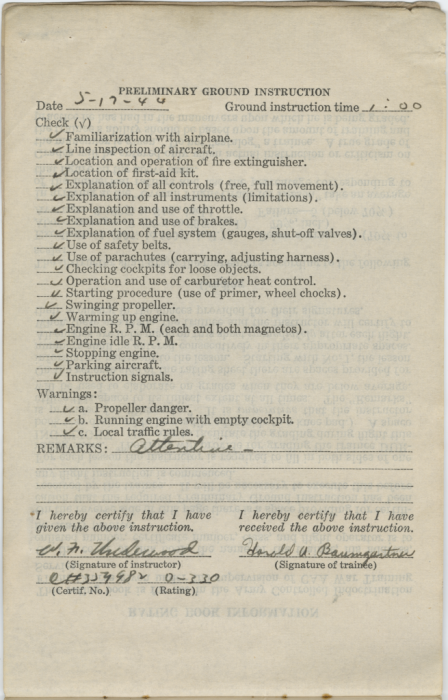 PRELIMINARY GROUND INSTRUCTION
Date 5-17-44 Ground instruction time 1:00
Check (√)
✓ Familiarization with airplane.
✓ Line inspection of aircraft.
✓ Location and operation of fire extinguisher.
✓ Location of first-aid kit.
✓ Explanation of all controls (free, full movement).
✓ Explanation of all instruments (limitations).
✓ Explanation and use of throttle.
✓ Explanation and use of brakes.
✓ Explanation of fuel system (gauges, shut-off valves).
✓ Use of safety belts.
✓ Use of parachutes (carrying, adjusting harness).
✓ Checking cockpits for loose objects.
✓ Operation and use of carburetor heat control.
✓ Starting procedure (use of primer, wheel chocks).
✓ Swinging propeller.
✓ Warming up engine.
✓ Engine R. P. M. (each and both magnetos).
✓ Engine idle R. P. M.
✓ Stopping engine.
✓ Parking aircraft.
✓ Instruction signals.
Warnings:
✓ a. Propeller danger.
✓ b. Running engine with empty cockpit.
✓ c. Local traffic rules.
REMARKS: Attentive –
I hereby certify that I have given the above instruction.
I hereby certify that I have received the above instruction.
Underwood
Harold A. Baumgartner
(Signature of instructor) (Signature of trainee)
0-330
(Certif. No.) (Rating)